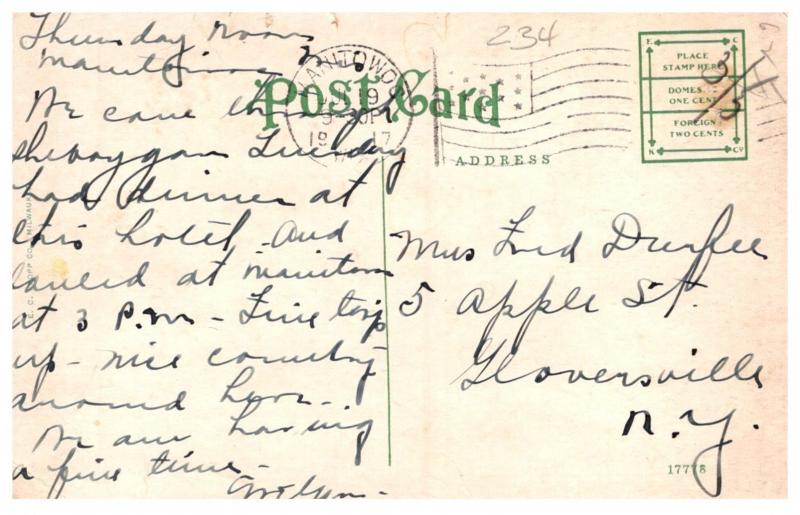 Thursday noon
We came through
Sheboygan Tuesday
had dinner at
this hotel and
landed at Manitowoc
at 3 P.M. - Fine trip
up - nice country
around here.
We are having
a fine time -
Post Card
ADDRESS
MANITOWOC
19
19 17
234
PLACE
STAMP HERE
DOMES
ONE CENT
FOREIGN
TWO CENTS
E C
K Cº
Mrs Fred Durfee
5 Apple St.
Gloversville
N.Y.
17778
E. C. KROPP CO. MILWAUKEE